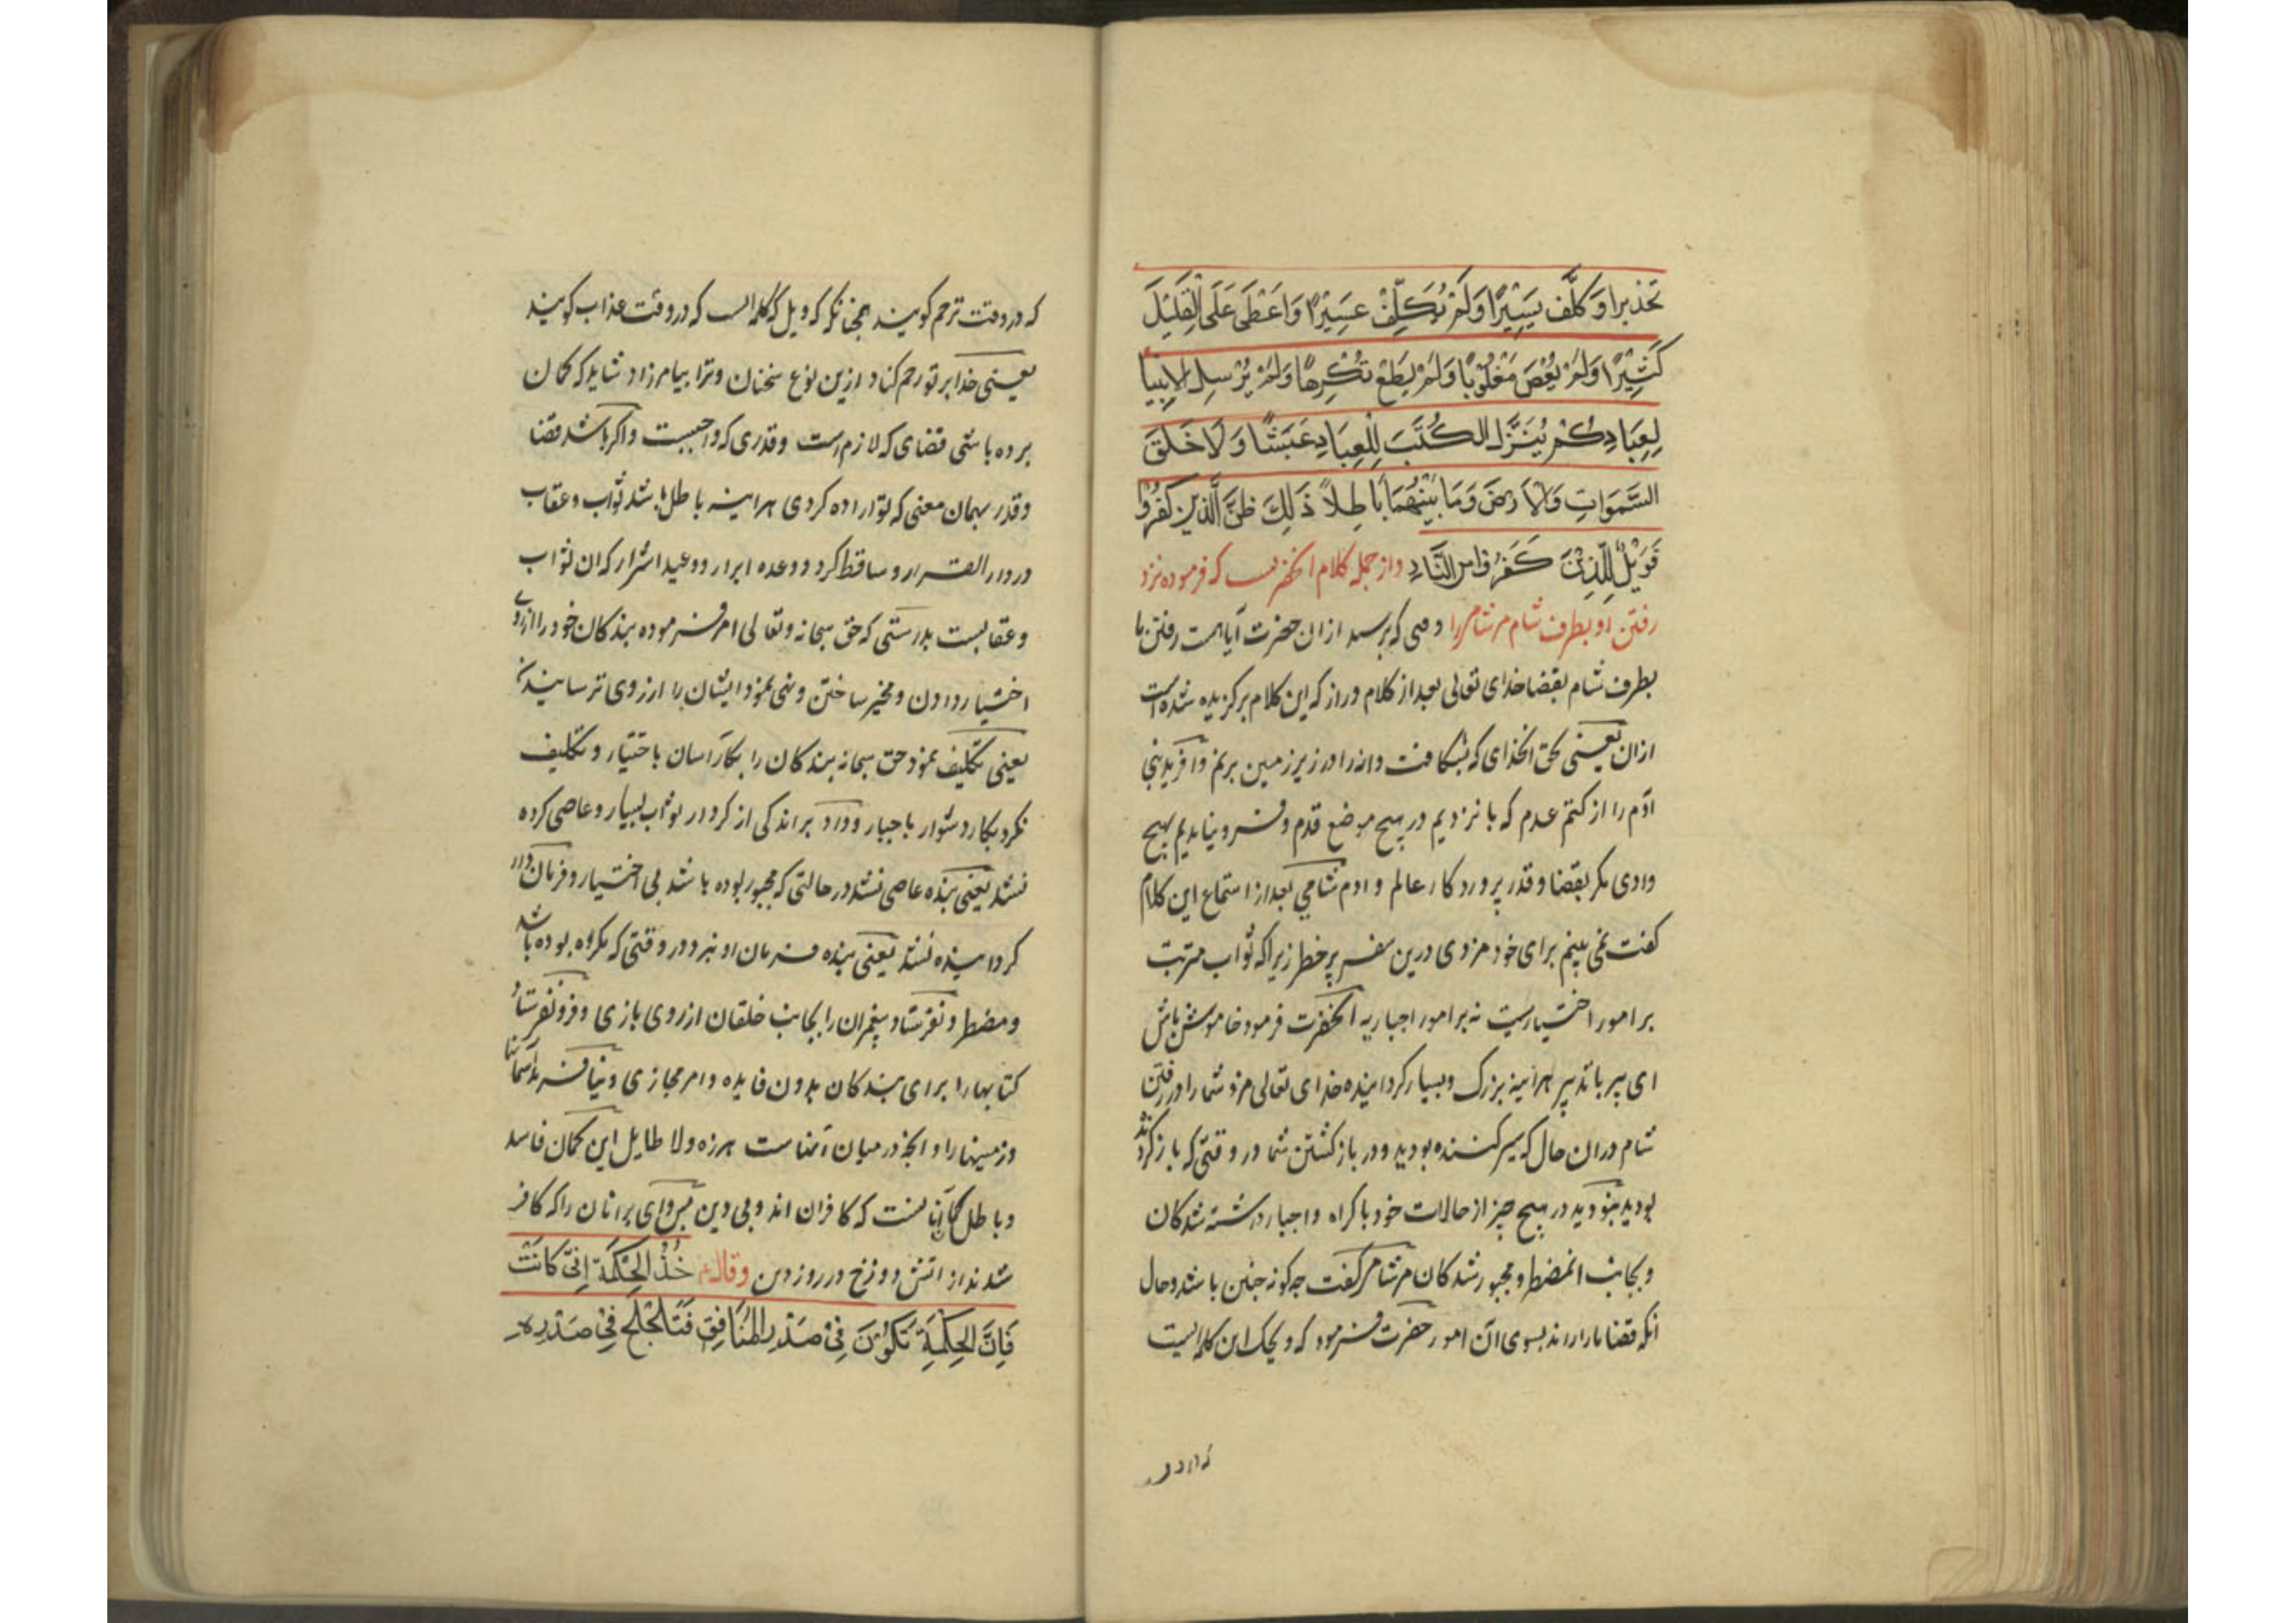 تَحْذیرا وَکَلَّفَ یَسِیْرًا وَلَمْ یُکَلِّفْ عَسِیْرًا وَاَعْطٰی عَلَی الْقَلِیْلِ
کَثِیْرًا وَلَمْ یُعْصَ مَغْلُوْبًا وَلَمْ یُطَعْ مُکْرِهًا وَلَمْ یُرْسِلِ الاَنبِیَآ
لِعِبًا وَلَمْ یُنَزِّلِ الکُتُبَ لِلْعِبَادِ عَبَثًا وَلَا خَلَقَ
السَّمَوَاتِ وَالْاَرْضَ وَمَا بَیْنَهُمَا بَاطِلاً ذَلِكَ ظَنُّ الَّذِیْنَ کَفَرُوْا
فَوَیْلٌ لِلَّذِیْنَ کَفَرُوْا مِنَ النَّارِ واز جمله کلام انحضرتست که فرموده نزد
رفتن او بطرف شام مر شامی را وقتی که پرسید ازان حضرت آیا هست رفتن ما
بطرف شام بقضا خدای تعالی بعد از کلام دراز که این کلام برکزیده شده است
ازان یعنی بحق انخدای که بشکافت دانه را در زیر زمین برنم وافرید بنی
آدم را از کتم عدم که ما نزدیم در هیچ موضع قدم وفرو نیامدیم بهیچ
وادی مکر بقضا وقدر پروردکار عالم وادم شامی بعد از استماع این کلام
کفت نمی بینم برای خود مزدی درین سفر پر خطر زیراکه ثواب مترتب
بر امور اختیاریست نه بر امور اجباریه انحضرت فرمود خاموش باش
ای پیر با تدبیر هراینه بزرگ وبسیار کرداینده خدای تعالی مزد شما را در رفتن
شام دران حال که سیر کننده بودید ودر بازکشتن شما در وقتی که بازکردنده
بودید نبودید در هیچ چیز از حالات خود باکراه واجبار داشته شدکان
وبجانب ان مضطر ومجبور شدکان مر شامی کفت چه کونه چنین باشد وحال
انکه قضا ما را راند بسوی آن امور حضرت فرمود که ویحک این کلمه ایست
که در و
که در وقت ترحم کویند همچنانکه ویل کلمه ایست که در وقت عذاب کویند
یعنی خدا بر تو رحم کناد ازین نوع سخنان وترا بیامرزاد شاید که کمان
برده باشی قضای که لازم است وقدری که واجبست واکر باشد قضا
وقدر بهمان معنی که تو اراده کردی هراینه باطل باشد ثواب وعقاب
در دار القرار وساقط کردد وعده ابرار ووعید اشرار که ان ثواب
وعقابست بدرستی که حق سبحانه وتعالی امر فرموده بندکان خود را از روی
اختیار دادن ومخیر ساختن ونهی نمود ایشان را از روی ترسانیدن
یعنی تکلیف نمود حق سبحانه بندکان را بکار آسان باختیار وتکلیف
نکرد بکار دشوار باجبار وداد بر اندکی از کردار ثواب بسیار وعاصی کرده
نشد یعنی بنده عاصی نشد در حالتی که مجبور بوده باشد بی اختیار وفرمان
کرداینده نشد یعنی بنده فرمان او نبرد در وقتی که مکروه بوده باشد
ومضطر ونفرستاد پیغمبران را بجانب خلقان از روی بازی وفرو نفرستاد
کتابها را برای بندکان بدون فایده وامر مجازی ونیافرید آسمانها
وزمینها را وانچه در میان آنهاست هرزه ولا طایل این کمان فاسد
وباطل کمان آنانست که کافران اند وبی دین پس وای بر انان را که کافر
شدند از اتش دوزخ در روز دین وقال ع خُذِ الْحِکْمَةَ اَنّٰی کَانَتْ
فَاِنَّ الحِکْمَةَ تَکُوْنَ فِیْ صَدْرِ الْمُنَافِقِ فَتَلَجْلَجُ فِیْ صَدْرِهِ